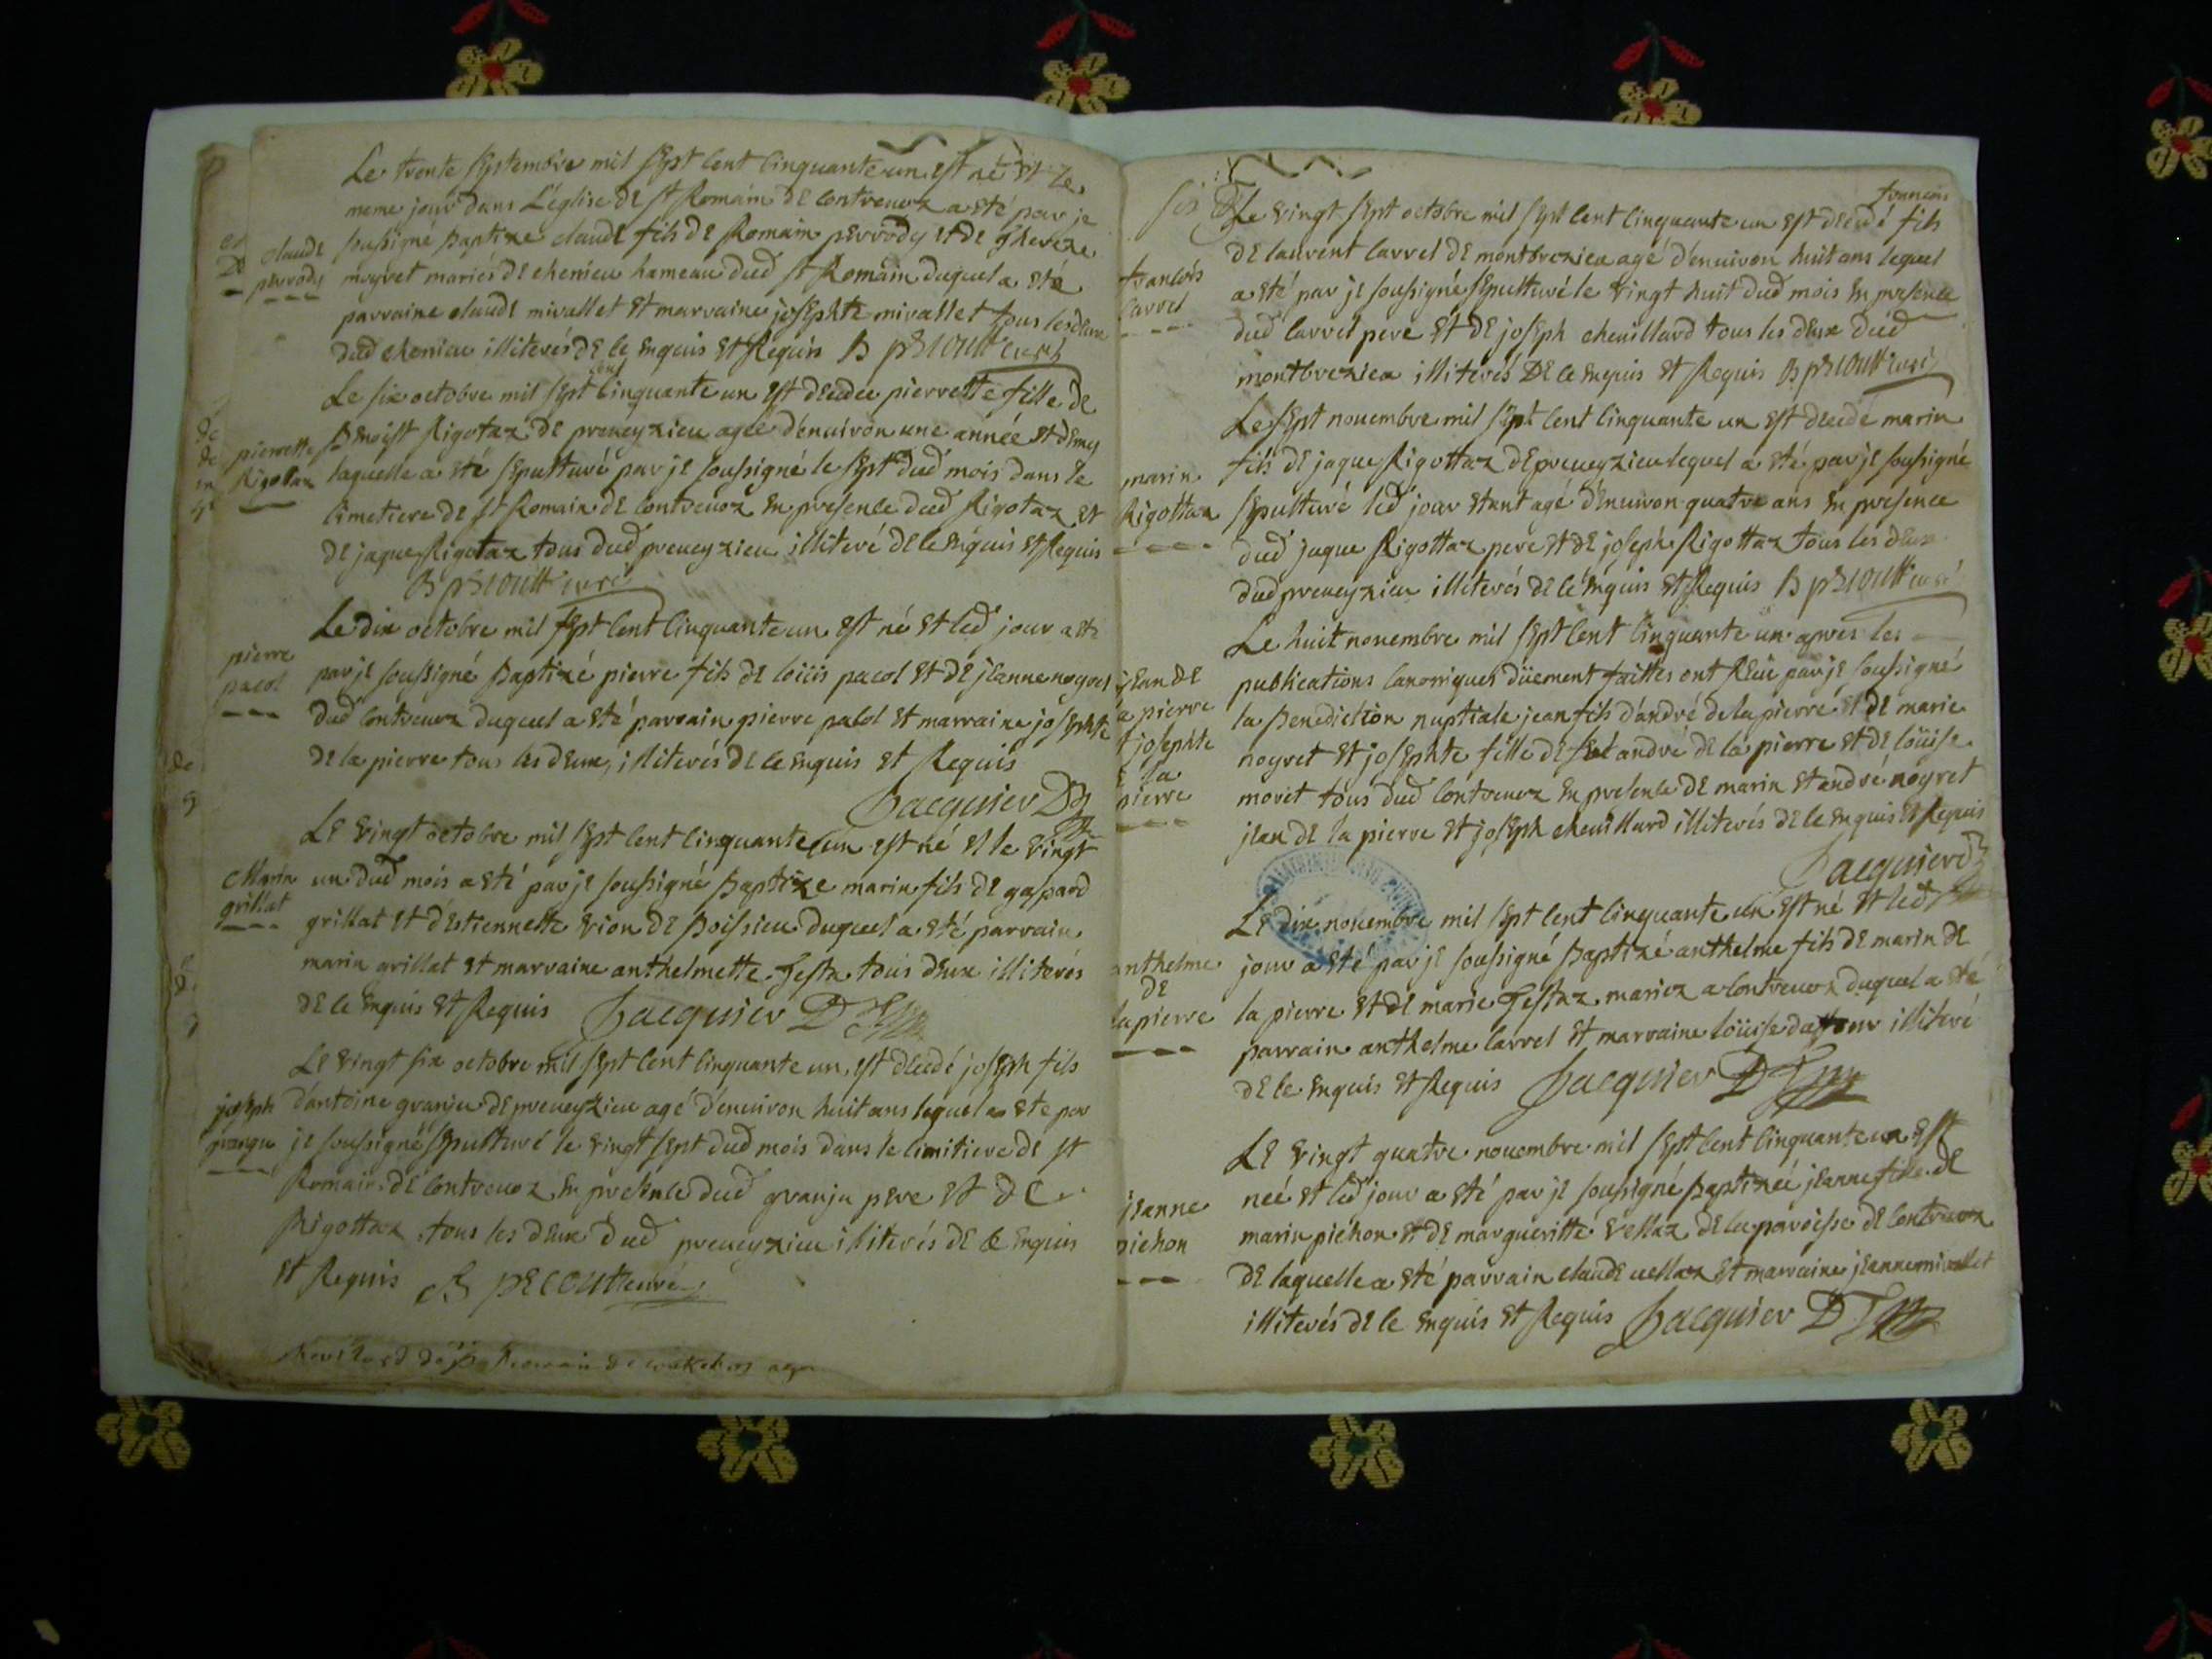 Le trente septembre mil sept cent cinquante un est né et le
meme jour dans L'église de st Romain de contrevoz a eté par je
claude
perrody
soussigné baptize claude fils de Romain perrody et de
noyret mariés de chenieu hameau dud st Romain duquel a eté
parraine claude mirallet et marraine josephte mirallet tous les deux
dud chenieu illiterés de ce enquis et Requis B curé
Le six octobre mil sept cent cinquante un est decedee pierrette fille de
pierrette
Rigotaz
Benoist Rigotaz de preveyzieu agée d'enuiron une année et demy
laquelle a eté sepulturé par je soussigné le sept dud mois dans le
cimetiere de st Romain de contrevoz en presence dud Rigotaz et
de jaque Rigotaz tous dud preveyzieu illiteré de ce enquis et Requis
B curé
Le dix octobre mil sept cent cinquante un est né et led jour a eté
pierre
pacol
par je soussigné baptizé pierre fils de loüis pacol et de jeanne
dud contrevoz duquel a eté parrain pierre pacol et marraine josephte
de la pierre tous les deux illiterés de ce enquis et Requis
Jacquier
Le vingt octobre mil sept cent cinquante un est né et le vingt
Marin
grillat
un dud mois a eté par je soussigné baptize marin fils de gaspard
grillat et d'estiennette vion de boissieu duquel a eté parrain
marin grillat et marraine anthelmette festa tous deux illiterés
de ce enquis et Requis Jacquier
Le vingt six octobre mil sept cent cinquante un est decedé joseph fils
joseph
d'antoine granju de preveyzieu agé d'enuiron huit ans lequel a ete par
je soussigné sepulturé le vingt sept dud mois dans le cimitiere de st
Romain de contrevoz en presence dud granju pere et de
Rigottaz tous les deux dud preveyzieu illiterés de ce enquis
et Requis B curé
francois
Le vingt sept octobre mil sept cent cinquante un est decedé fils
francois
carrel
de laurent carrel de montbrezieu agé d'enuiron huit ans lequel
a eté par je soussigné sepulturé le vingt huit dud mois en presence
dud carrel pere et de joseph cheuillard tous les deux dud
montbrezieu illiterés de ce enquis et Requis B curé
Le sept nouembre mil sept cent cinquante un est decede marin
marin
Rigottaz
fils de jaque Rigottaz de preveyzieu lequel a eté par je soussigné
sepulturé led jour etant agé d'enuiron quatre ans en presence
dud jaque Rigottaz pere et de joseph Rigottaz tous les deux
dud preveyzieu illiterés de ce enquis et Requis B curé
Le huit nouembre mil sept cent cinquante un apres les
jean de
la pierre
josephte
la
pierre
publications canoniques düement faittes ont par je soussigné
la benediction nuptiale jean fils d'andré de la pierre et de marie
noyret et josephte fille de andré de la pierre et de loüise
moret tous dud contrevoz en presence de marin et andré noyret
jean de la pierre et joseph cheuillard illiterés de ce enquis et Requis
Jacquier
Le dix nouembre mil sept cent cinquante un est né et led
anthelme
de
la pierre
jour a eté par je soussigné baptizé anthelme fils de marin de
la pierre et de marie festaz mariez a contrevoz duquel a eté
parrain anthelme carrel et marraine loüise illiteré
de ce enquis et Requis Jacquier
Le vingt quatre nouembre mil sept cent cinquante un est
jeanne
pichon
neé et led jour a eté par je soussigné baptizeé jeanne fille de
marin pichon et de margueritte vellaz de la paroisse de contrevoz
de laquelle a eté parrain claude vellaz et marraine jeanne mirallet
illiterés de ce enquis et Requis Jacquier